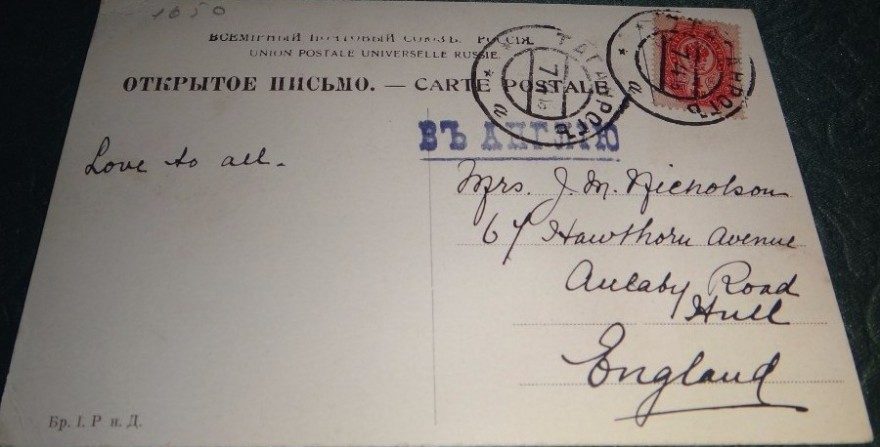 1050
ВСЕМІРНЫЙ ПОЧТОВЫЙ СОЮЗЪ. РОССІЯ.
UNION POSTALE UNIVERSELLE RUSSIE.
ОТКРЫТОЕ ПИСЬМО. — CARTE POSTALE
ТАГАНРОГЪ
ТАГАНРОГЪ
ВЪ АНГЛІЮ
Love to all.
Mrs. J. M. Nicholson
67 Hawthorn Avenue
Anlaby Road
Hull
England
Бр. І. Р н. Д.